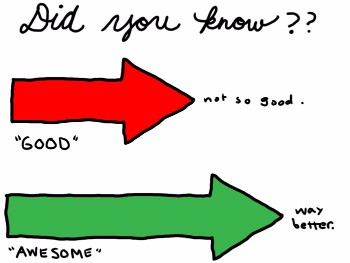 Did you know??
not so good.
"GOOD"
way
better.
"AWESOME"